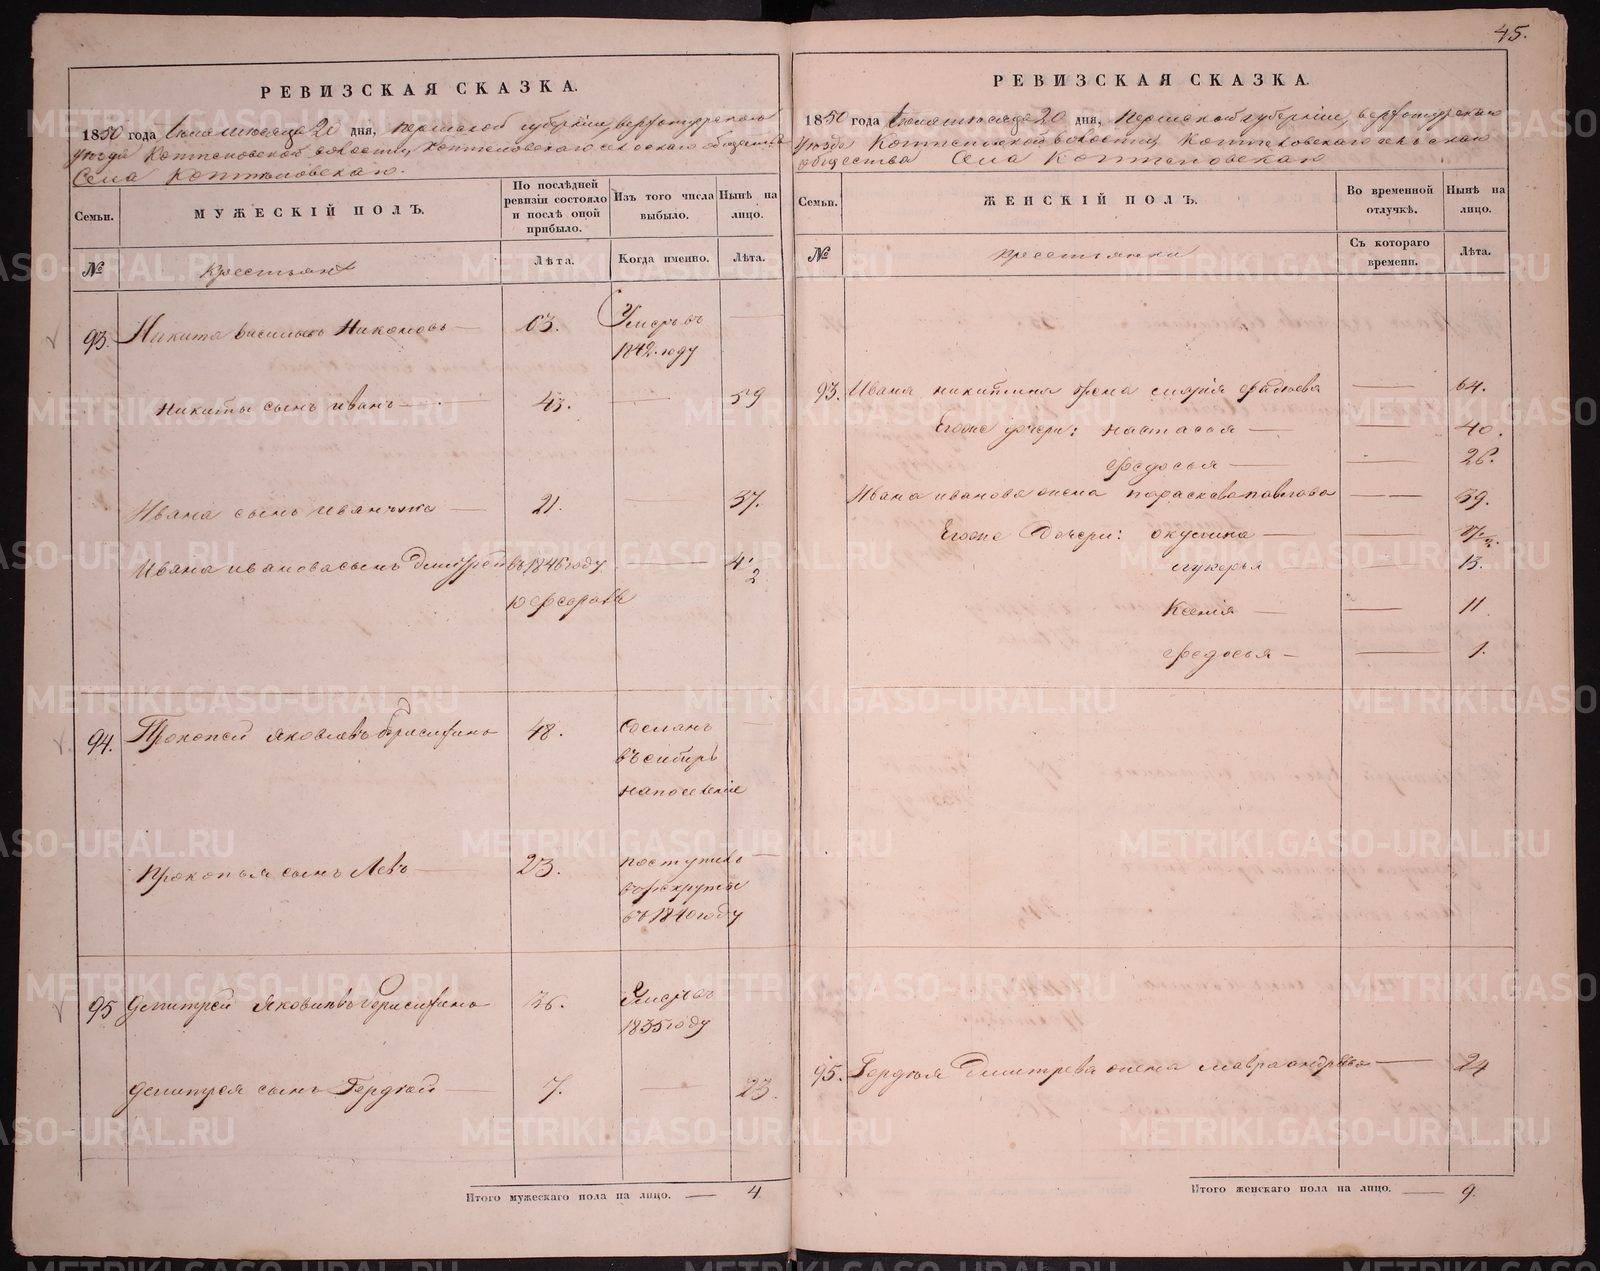 45.
РЕВИЗСКАЯ СКАЗКА.
1850 года Июля месяца 20 дня, Пермской губернии, верхотурскаго
уезда Коптеловской волости, Коптеловскаго сельскаго общества
Села Коптеловскаго.
Семьи.
МУЖЕСКІЙ ПОЛЪ.
По послѣдней ревизіи состояло и послѣ оной прибыло.
Изъ того числа выбыло.
Нынѣ на лицо.
№
Крестьянъ
Лѣта.
Когда именно.
Лѣта.
93. Никита васильевъ Никоновъ — 63. Умеръ въ —
1842 году
Никиты сынъ иванъ — 43. — 59
Ивана сынъ иванъ же — 21. — 37.
Ивана иванова сынъ Дмитрей въ 1846 году — 4 1/2
94. Прокопей Яковлевъ 48. Сосланъ —
въ сибирь
на поселеніе
Прокопья сынъ Левъ — 23. поступилъ —
въ рекруты
въ 1840 году
95 Демитрей Яковлевъ 36. Умеръ въ
1835 году
Демитрея сынъ Гордѣй — 7. — 23.
Итого мужескаго пола на лицо. — 4
РЕВИЗСКАЯ СКАЗКА.
1850 года Июля месяца 20 дня, Пермской губерніи, верхотурскаго
уезда Коптеловской волости Коптеловскаго сельскаго
общества Села Коптеловскаго
Семьи.
ЖЕНСКІЙ ПОЛЪ.
Во временной отлучкѣ.
Нынѣ на лицо.
№
Крестьянки
Съ котораго времени.
Лѣта.
93. Ивана никитина жена марія — 64.
Егоже дочери: настасья — — 40.
федосья — — 26.
Ивана иванова жена параскева павлова — 39.
Егоже Дочери: окулина — — 17
лукерья — 13.
Ксенія — — 11
федосья — — 1.
95. Гордѣя Дмитрева жена мавра андрѣева — 24
Итого женскаго пола на лицо. — 9.